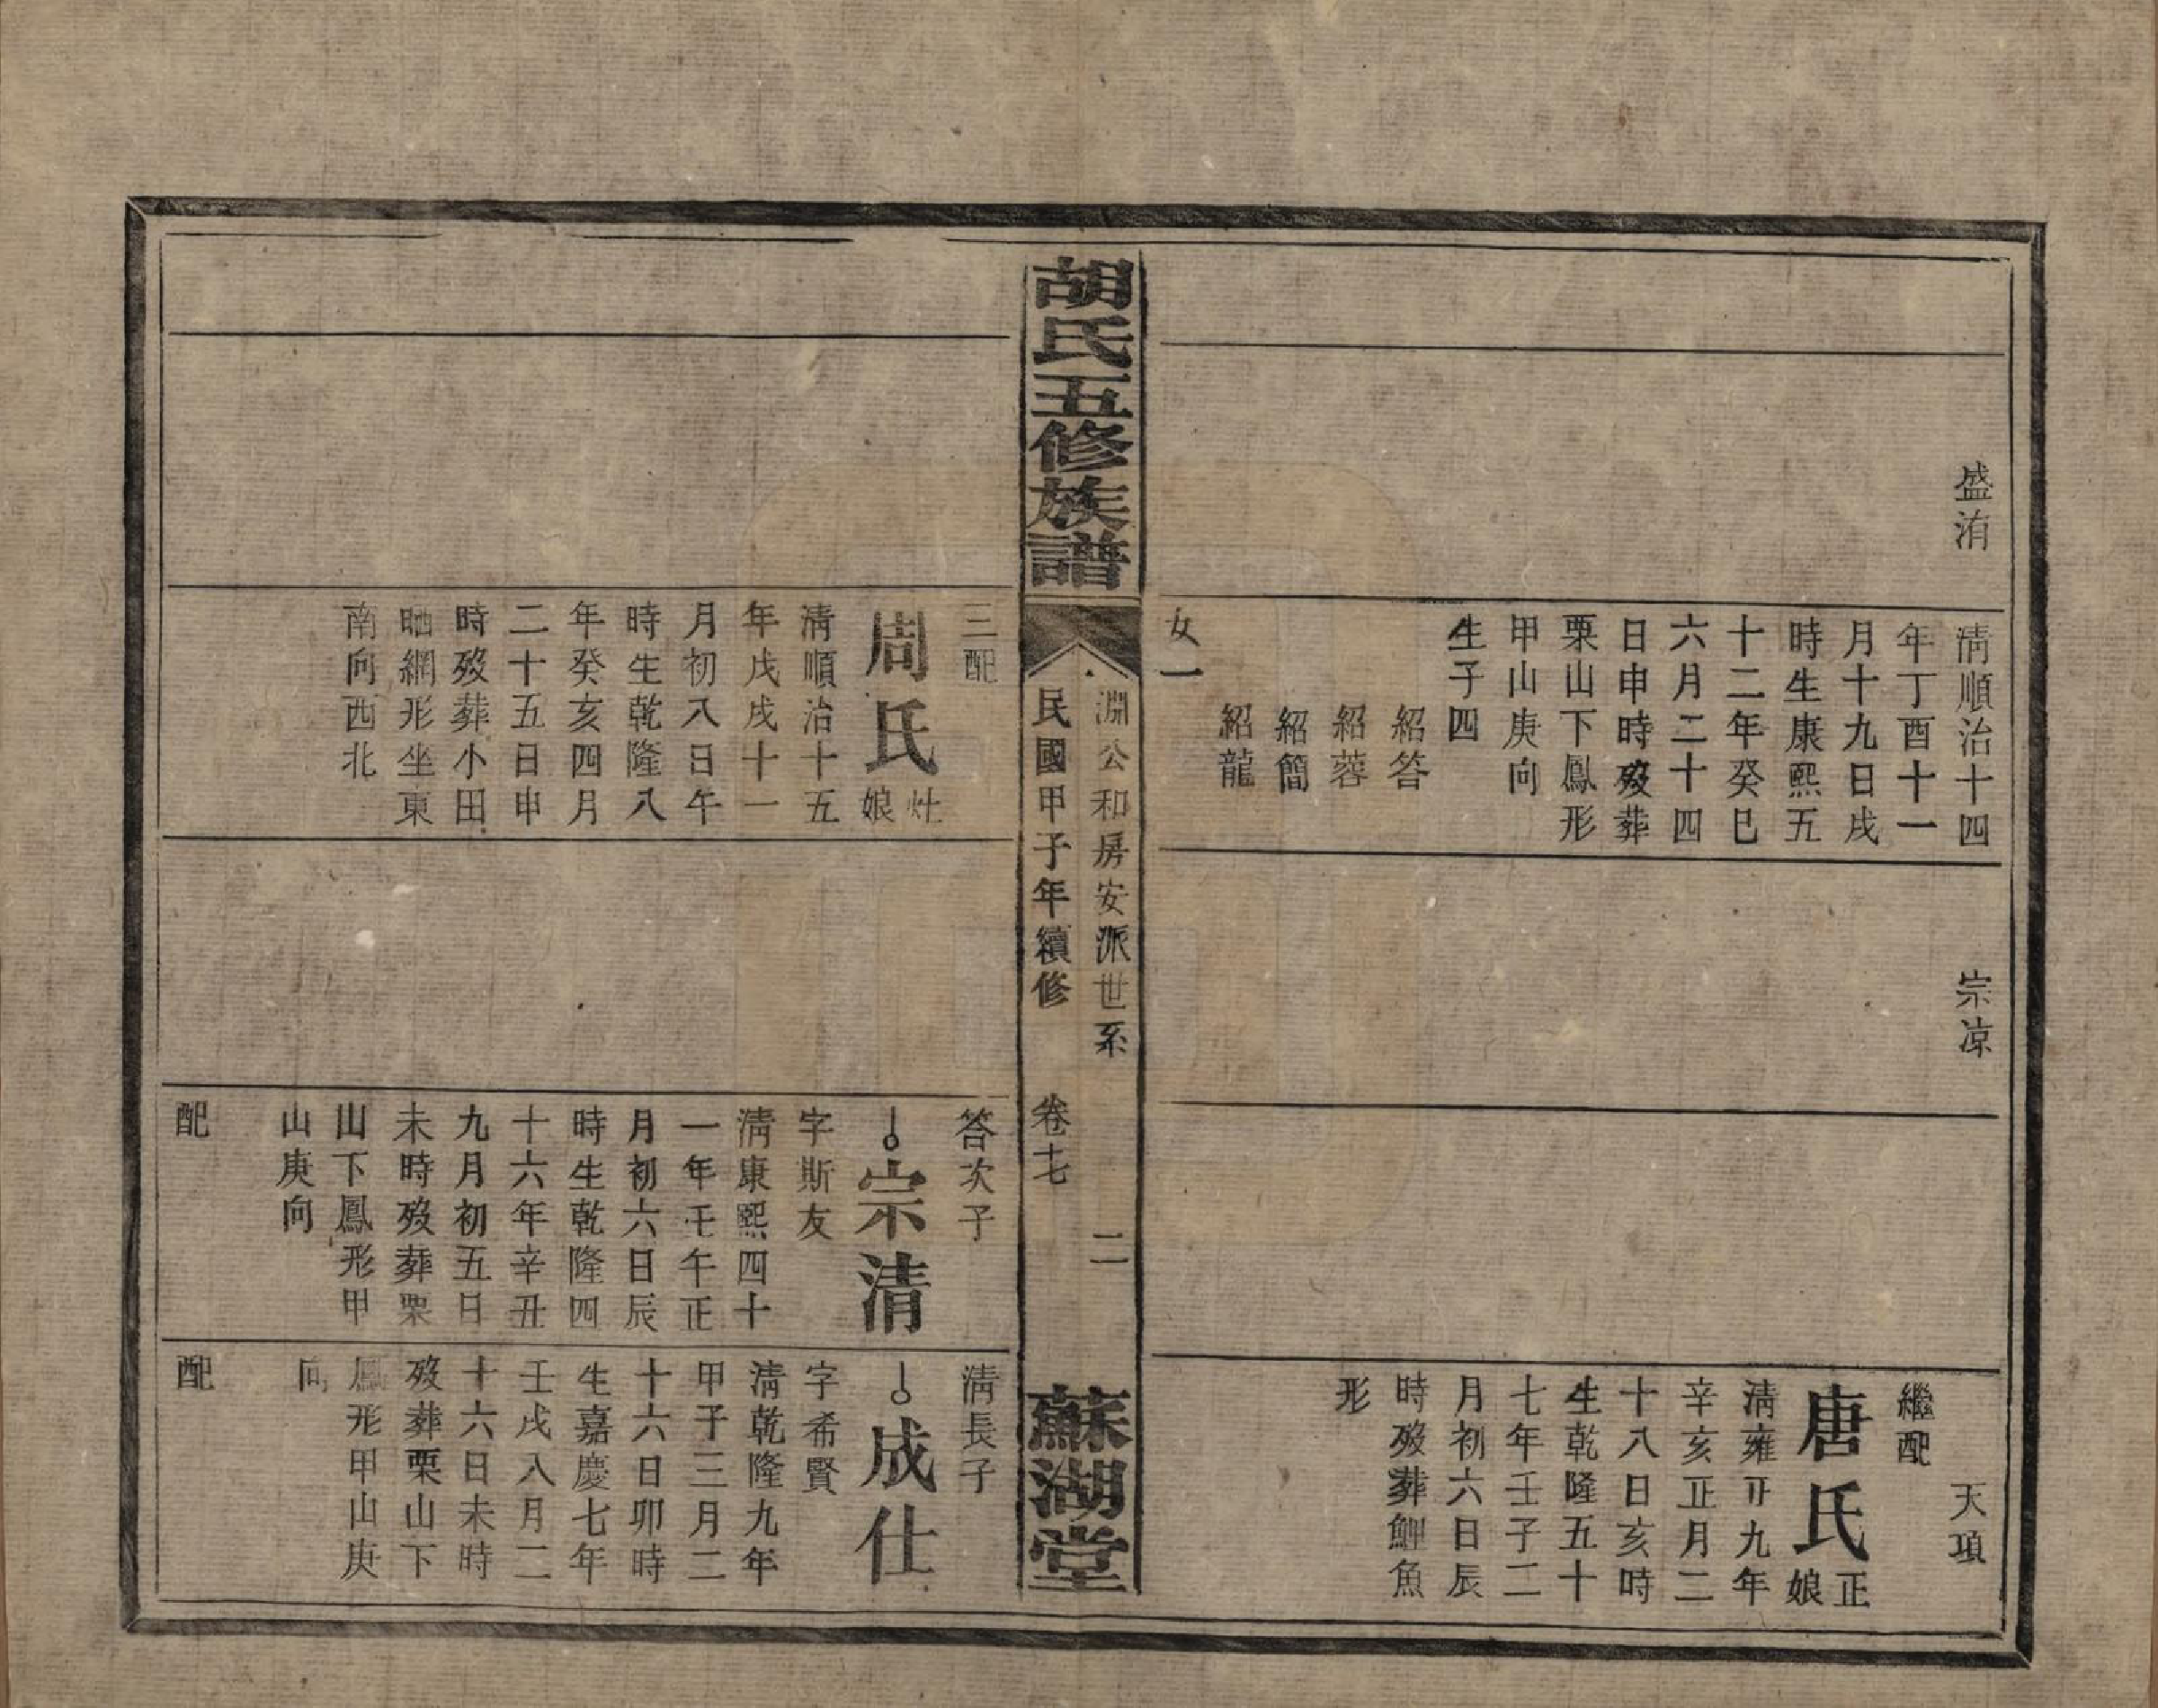 盛洧
清順治十四
年丁酉十一
月十九日戌
時生康熙五
十二年癸巳
六月二十四
日申時歿葬
栗山下鳳形
甲山庚向
生子四
紹答
紹蓉
紹簡
紹龍
女一
宗凉
天項
繼配
唐氏正娘
淸雍正九年
辛亥正月二
十八日亥時
生乾隆五十
七年壬子二
月初六日辰
時歿葬鯉魚
形
胡氏五修族譜
淵公和房安派世系 二
民國甲子年續修 卷十七
蘇湖堂
三配
周氏灶娘
淸順治十五
年戊戌十一
月初八日午
時生乾隆八
年癸亥四月
二十五日申
時歿葬小田
晒網形坐東
南向西北
答次子
宗清
字斯友
淸康熙四十
一年壬午正
月初六日辰
時生乾隆四
十六年辛丑
九月初五日
未時歿葬栗
山下鳳形甲
山庚向
配
淸長子
成仕
字希賢
淸乾隆九年
甲子三月二
十六日卯時
生嘉慶七年
壬戌八月二
十六日未時
歿葬栗山下
鳳形甲山庚
向
配